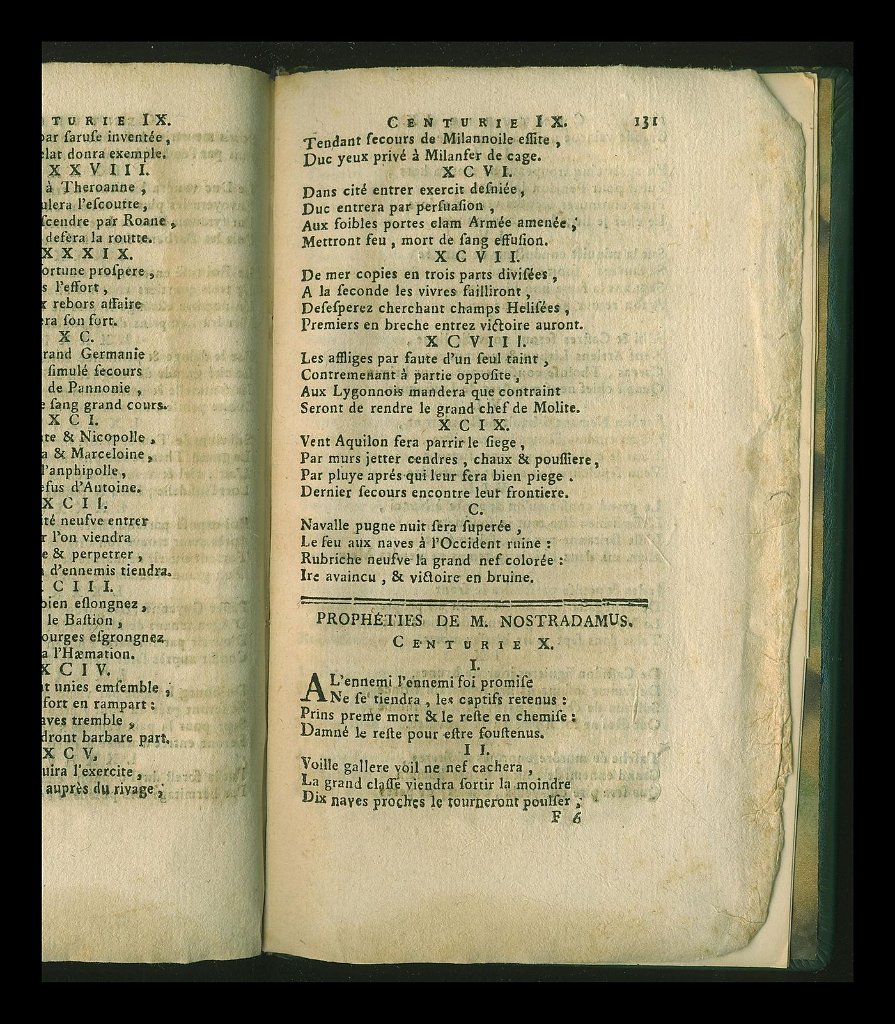 TURIE IX.
par faruſe inventée,
elat donra exemple.
XXVIII.
à Theroanne,
ulera l'eſcoutte,
ſcendre par Roane,
defèra la routte.
XXXIX.
ortune proſpere,
s l'effort,
x rebors affaire
era ſon ſort.
XC.
rand Germanie
ſimulé ſecours
de Pannonie,
e ſang grand cours.
XCI.
te & Nicopolle,
a & Marceloine,
l'anphipolle,
efus d'Antoine.
XCII.
ité neufve entrer
r l'on viendra
e & perpetrer,
d'ennemis tiendra.
CIII.
bien eſlongnez,
le Baſtion,
ourges eſgrongnez
a l'Hæmation.
XCIV.
t unies emſemble,
fort en rampart :
aves tremble,
dront barbare part.
XCV.
uira l'exercite,
auprès du rivage,
CENTURIE IX. 131
Tendant ſecours de Milannoile eſſite,
Duc yeux privé à Milanſer de cage.
XCVI.
Dans cité entrer exercit deſniée,
Duc entrera par perſuaſion,
Aux foibles portes clam Armée amenée,
Mettront feu, mort de ſang effuſion.
XCVII.
De mer copies en trois parts diviſées,
A la ſeconde les vivres failliront,
Deſeſperez cherchant champs Heliſées,
Premiers en breche entrez victoire auront.
XCVIII.
Les affliges par faute d'un ſeul taint,
Contremenant à partie oppoſite,
Aux Lygonnois mandera que contraint
Seront de rendre le grand chef de Molite.
XCIX.
Vent Aquilon fera parrir le ſiege,
Par murs jetter cendres, chaux & pouſſiere,
Par pluye aprés qui leur fera bien piege.
Dernier ſecours encontre leur frontiere.
C.
Navalle pugne nuit ſera ſuperée,
Le feu aux naves à l'Occident ruine :
Rubriche neufve la grand nef colorée :
Ire avaincu, & victoire en bruine.
PROPHÉTIES DE M. NOSTRADAMUS.
CENTURIE X.
I.
A L'ennemi l'ennemi foi promiſe
Ne ſe tiendra, les captifs retenus :
Prins preme mort & le reſte en chemiſe :
Damné le reſte pour eſtre ſouſtenus.
II.
Voille gallere voil ne nef cachera,
La grand claſſe viendra ſortir la moindre
Dix naves proches le tourneront poulſer,
F 6